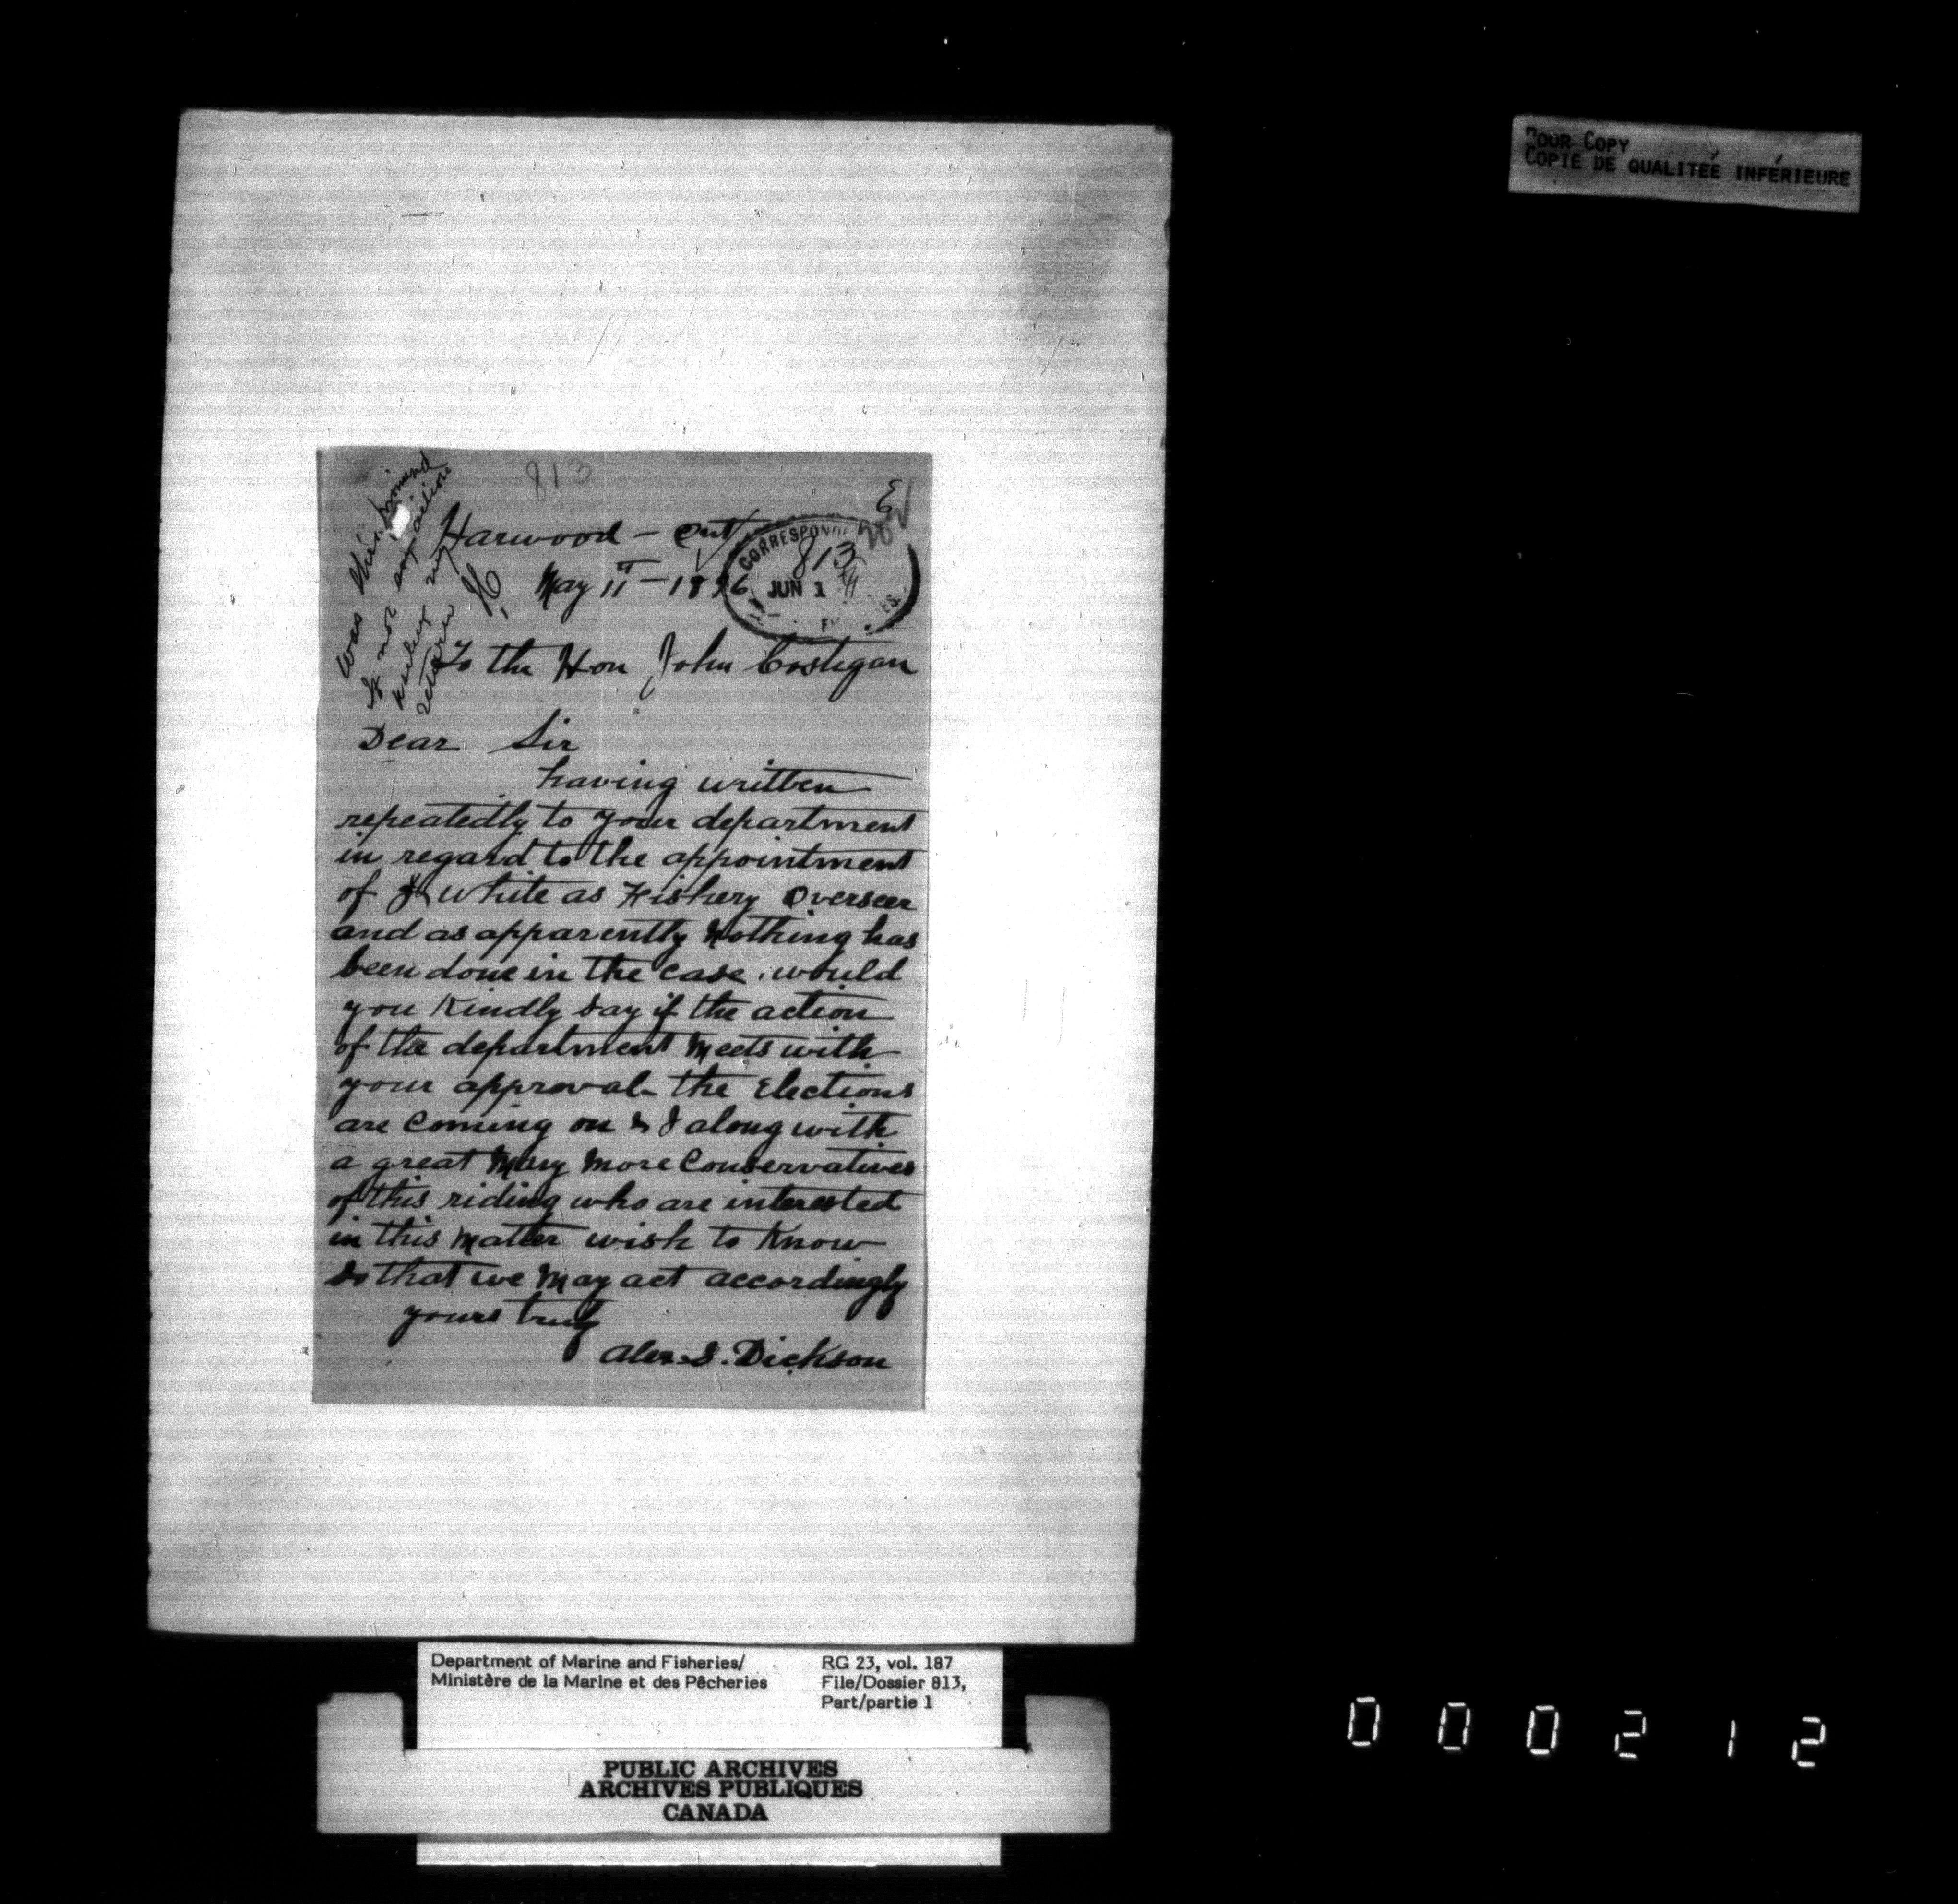 Pour Copy
Copie de qualiteé inférieure
813
E
Harwood - Ont
May 11 - 1896
CORRESPOND
813
JUN 1
To the Hon John Costigan
was this
if not
return
Dear Sir
having written
repeatedly to your department
in regard to the appointment
of J White as Fishery Overseer
and as apparently Nothing has
been done in the case. would
you Kindly say if the action
of the department Meets with
your approval - the Elections
are Coming on & I along with
a great Many More Conservatives
of this riding who are interested
in this Matter wish to Know
so that we May act accordingly
yours truly
Alex S. Dickson
Department of Marine and Fisheries/
Ministère de la Marine et des Pêcheries
RG 23, vol. 187
File/Dossier 813,
Part/partie 1
PUBLIC ARCHIVES
ARCHIVES PUBLIQUES
CANADA
000212